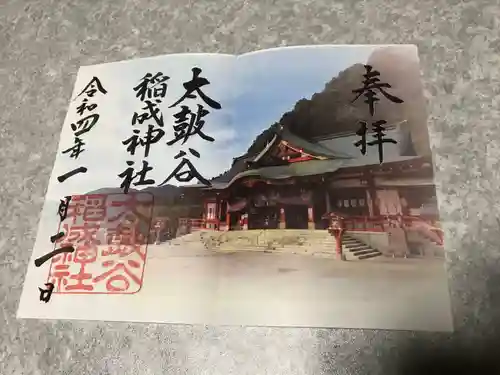 奉拝
太皷谷
稲成神社
令和四年一月二日
太皷谷
稲成神社